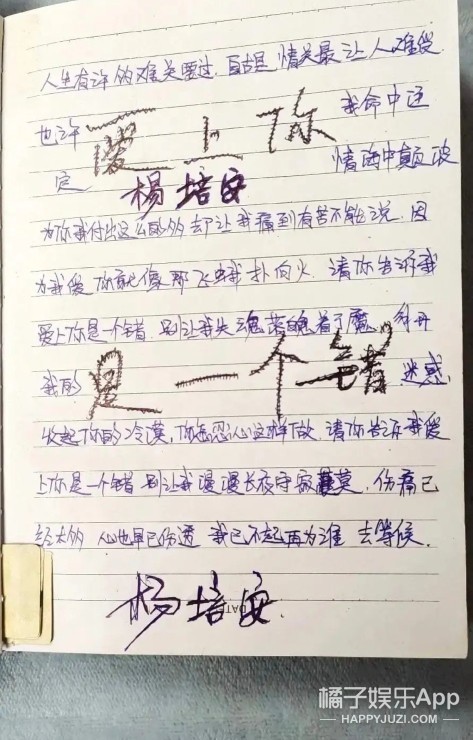 人生有许多难关要过．自古是 情关最让人难受
也许 爱上你 我命中注
定 杨培安 情海中颠波
为你我付出这么的多 却让我痛到有苦不能说．因
为我爱你就像那飞蛾扑向火．请你告诉我
爱上你是一个错 别让我失魂落魄着了魔．解开
我的 是一个错 迷惑．
收起你的冷漠，你怎忍心这样做．请你告诉我爱
上你是一个错 别让我漫漫长夜守寂寞．伤痛已
经太多 心也早已伤透 我已不起再为谁 去等候．
杨培安．
DAT
橘子娱乐App
—HAPPYJUZI.COM—